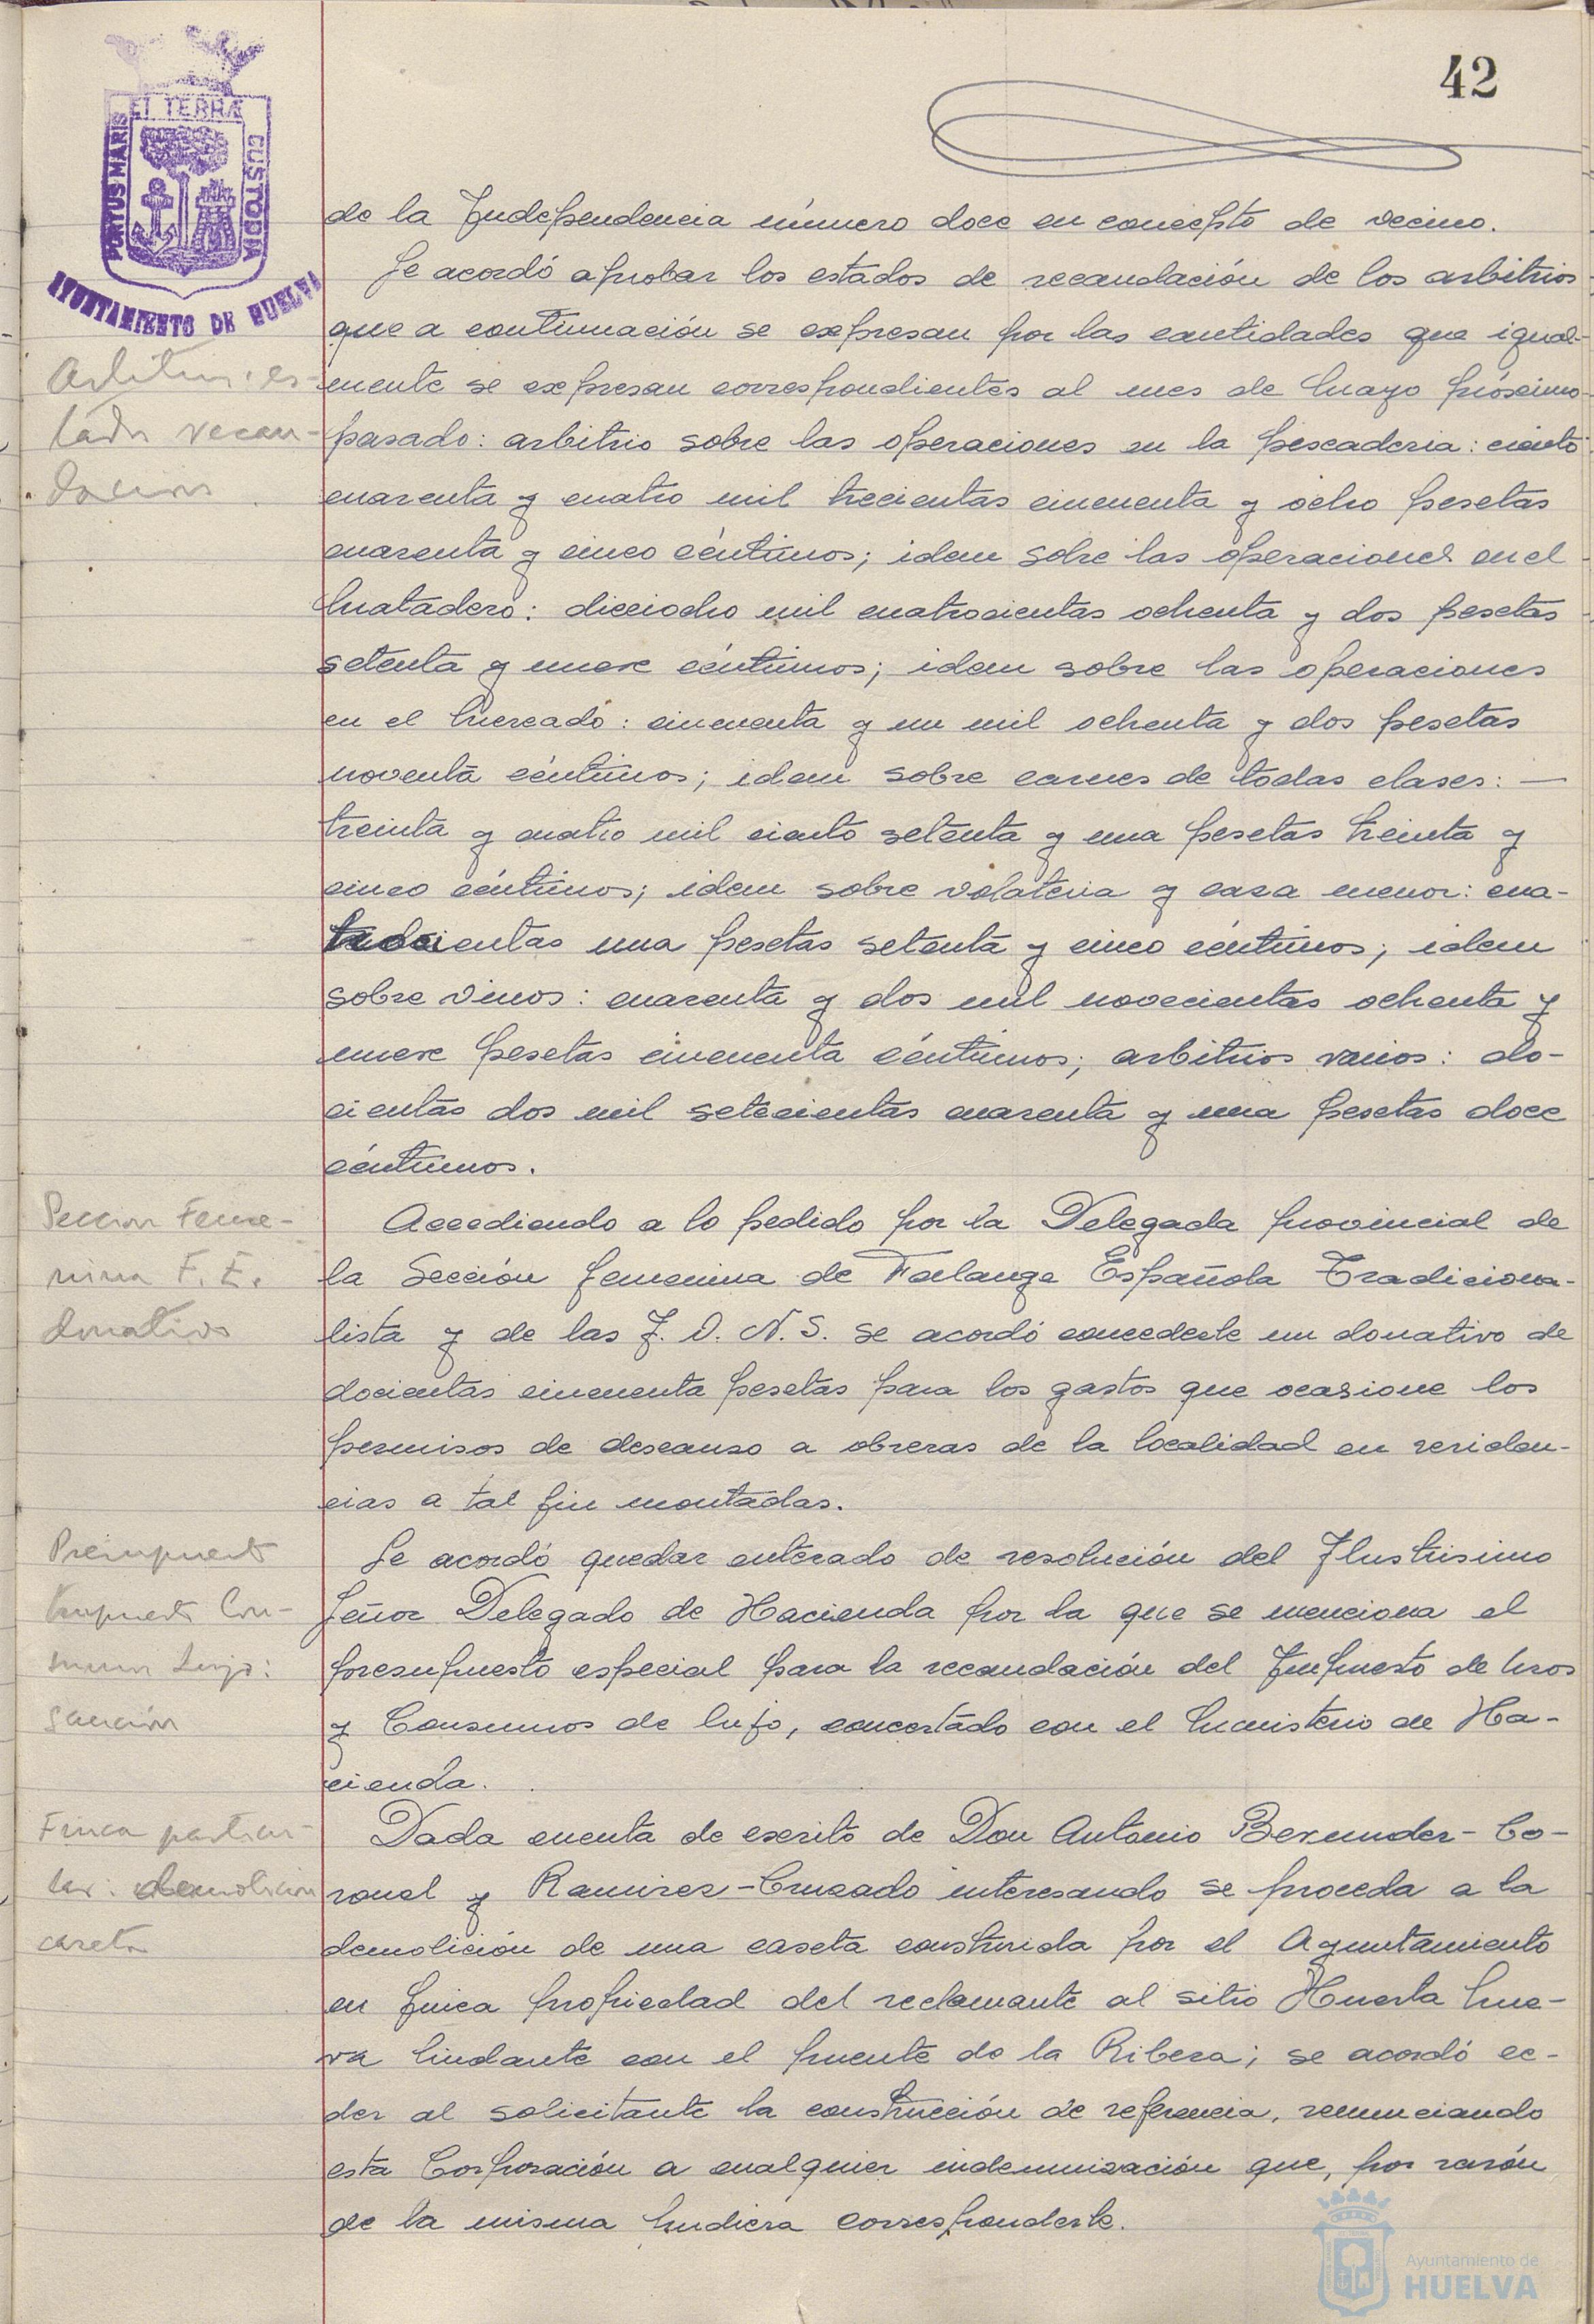 42
ET TERRA
PORTUS MARIS
CUSTODIA
AYUNTAMIENTO DE HUELVA
de la Independencia número doce en concepto de vecino.
Se acordó aprobar los estados de recaudación de los arbitrios
que a continuación se expresan por las cantidades que igual-
mente se expresan correspondientes al mes de Mayo próximo
pasado: arbitrio sobre las operaciones en la pescadería: ciento
cuarenta y cuatro mil trecientas cincuenta y ocho pesetas
cuarenta y cinco céntimos; idem sobre las operaciones en el
Matadero: dieciocho mil cuatrocientas ochenta y dos pesetas
setenta y nueve céntimos; idem sobre las operaciones
en el Mercado: cincuenta y un mil ochenta y dos pesetas
noventa céntimos; idem sobre carnes de todas clases: —
treinta y cuatro mil ciento setenta y una pesetas treinta y
cinco céntimos; idem sobre volatería y caza menor: cua-
trocientas una pesetas setenta y cinco céntimos; idem
sobre vinos: cuarenta y dos mil novecientas ochenta y
nueve pesetas cincuenta céntimos; arbitrios varios: do-
cientas dos mil setecientas cuarenta y una pesetas doce
céntimos.
Accediendo a lo pedido por la Delegada provincial de
la Sección femenina de Falange Española Tradiciona-
lista y de las J. O. N. S. se acordó concederle un donativo de
docientas cincuenta pesetas para los gastos que ocasione los
permisos de descanso a obreras de la localidad en residen-
cias a tal fin montadas.
Se acordó quedar enterado de resolución del Ilustrisimo
Señor Delegado de Hacienda por la que se menciona el
presupuesto especial para la recaudación del Impuesto de Usos
y Consumos de lujo, concertado con el Ministerio de Ha-
cienda.
Dada cuenta de escrito de Don Antonio Bermudez-Co-
ronel y Ramirez-Cruzado interesando se proceda a la
demolición de una caseta construida por el Ayuntamiento
en finca propiedad del reclamante al sitio Huerta Nue-
va lindante con el puente de la Ribera; se acordó ce-
der al solicitante la construcción de referencia, renunciando
esta Corporación a cualquier indemnización que, por razón
de la misma pudiera corresponderle.
Arbitrios: es-
tados recau-
dacion
Seccion Feme-
nina F. E.
donativo
Presupuesto
Impuesto Con-
sumos Lujo:
sanción
Finca particu-
lar: demolicion
caseta
Ayuntamiento de
HUELVA